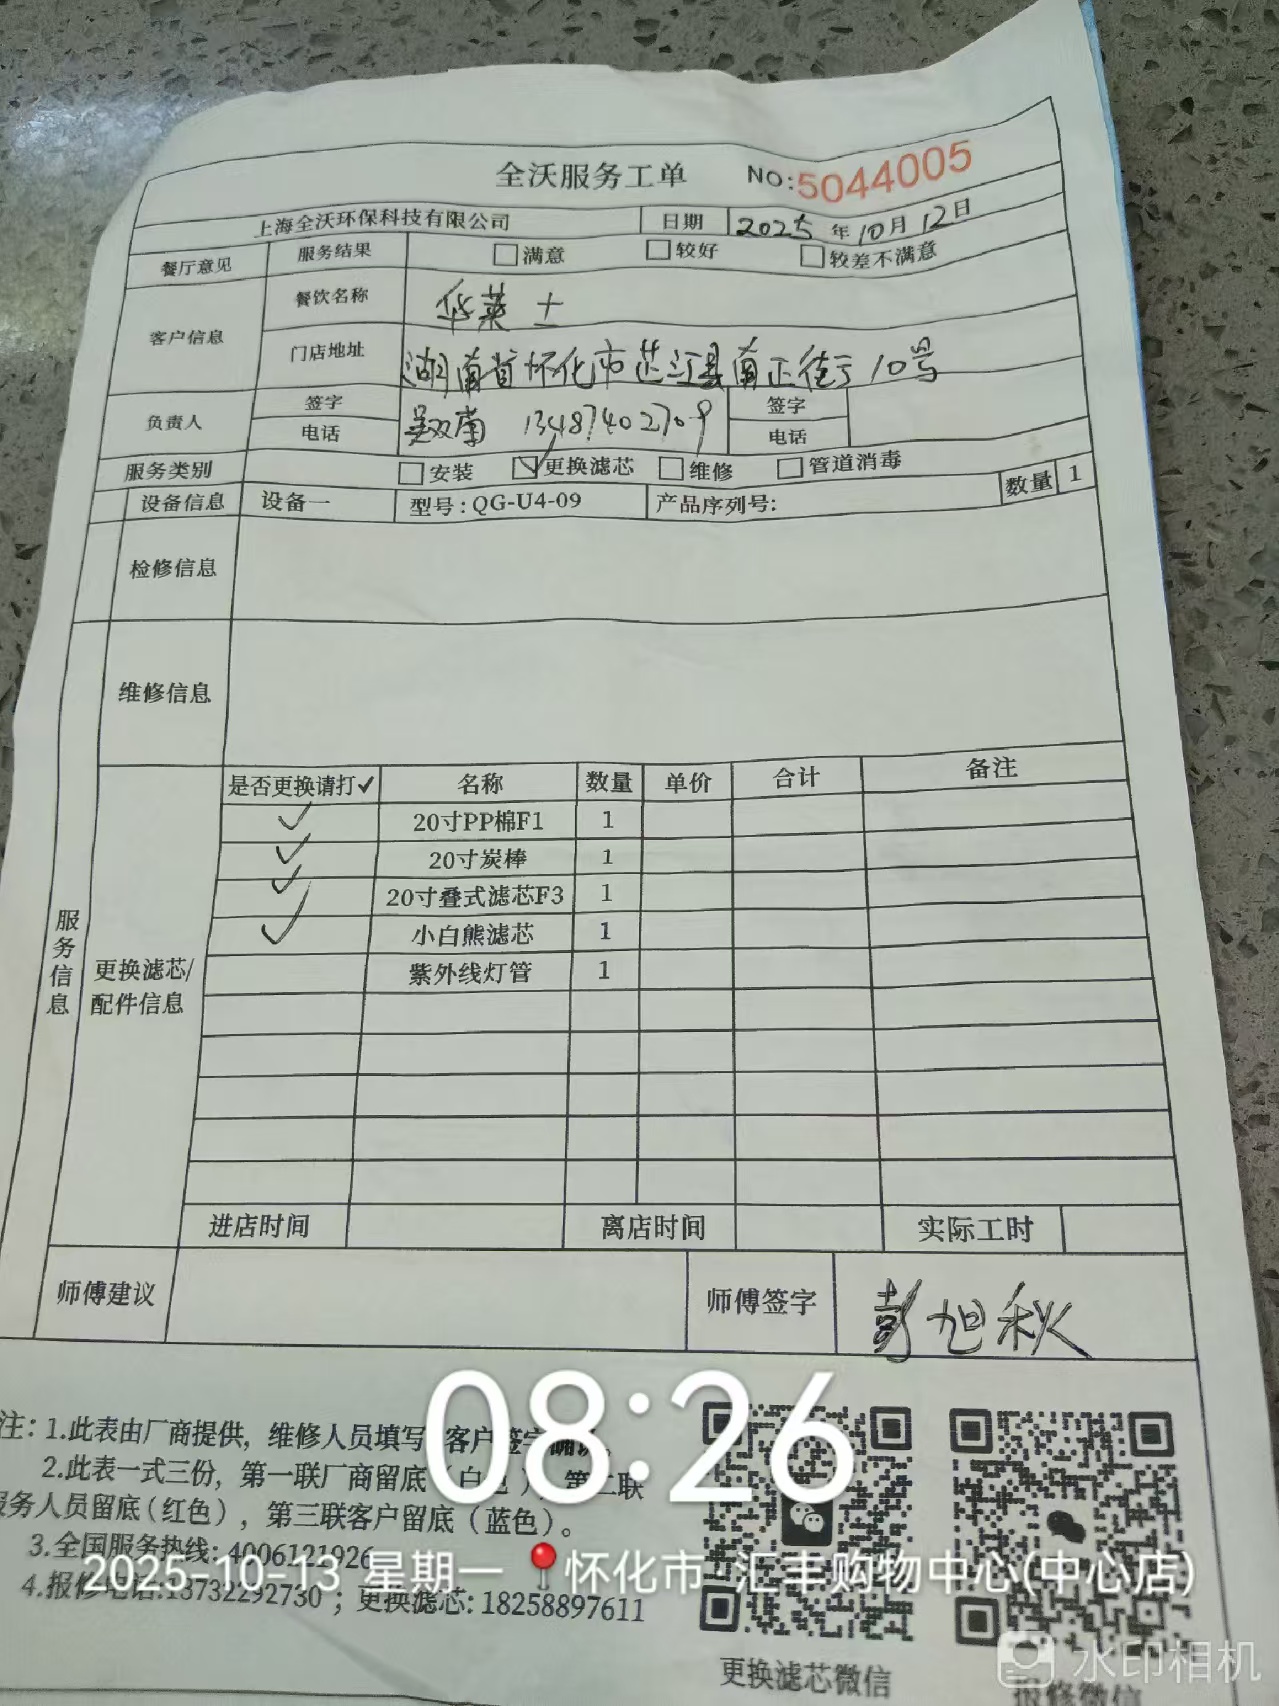 全沃服务工单 NO:5044005
上海全沃环保科技有限公司 日期 2025年10月12日
餐厅意见 服务结果 满意 较好 较差不满意
客户信息 餐饮名称 华莱士
门店地址 湖南省怀化市芷江县南正街10号
负责人 签字 吴双南 签字
电话 13487402709 电话
服务类别 安装 ✓更换滤芯 维修 管道消毒
设备信息 设备一 型号:QG-U4-09 产品序列号: 数量 1
检修信息
维修信息
服务信息
更换滤芯/
配件信息
是否更换请打✓ 名称 数量 单价 合计 备注
✓ 20寸PP棉F1 1
✓ 20寸炭棒 1
✓ 20寸叠式滤芯F3 1
✓ 小白熊滤芯 1
紫外线灯管 1
进店时间 离店时间 实际工时
师傅建议 师傅签字 彭旭秋
08:26
注:1.此表由厂商提供,维修人员填写 客户签字确认。
2.此表一式三份,第一联厂商留底(白色),第二联
服务人员留底(红色),第三联客户留底(蓝色)。
3.全国服务热线:4006121926
2025-10-13 星期一 怀化市·汇丰购物中心(中心店)
4.报修电话:18732292730;更换滤芯:18258897611
更换滤芯微信 报修微信
水印相机